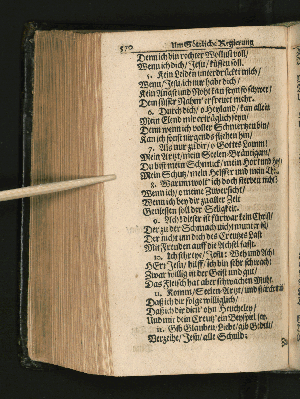 530 Um Göttliche Regierung
Denn ich bin rechter Wollust voll/
Wenn ich dich/ Jesu/ küssen soll.
5. Kein Leiden unterdrückt mich/
Wenn/ Jesu/ ich nur habe dich/
Kein Angst und Noht kan seyn so schwer/
Dein süsser Nahm' erfreuet mehr.
6. Durch dich/ o Heyland/ kan allein
Mein Elend mir erträglich seyn/
Denn wenn ich voller Schmertzen bin/
Kan ich sonst nirgends fliehen hin/
7. Als nur zu dir/ o Gottes Lamm!
Mein Artzt/ mein Seelen-Bräutigam/
Du bist mein Schmuck/ mein Hort und
Mein Schutz/ mein Helffer und mein
8. Warum wolt' ich doch sterben nicht?
Wenn ich/ o meine Zuversicht/
Wenn ich bey dir zu aller Zeit
Geniessen soll der Seligkeit.
9. Ach! dieser ist fürwar kein Christ/
Der zu der Schmach nicht munter ist/
Der nicht um dich des Creutzes Last
Mit Freuden auff die Achsel fasst.
10. Ich schreye/ Jesu: Weh und Ach!
HErr Jesu/ hilff/ ich bin sehr schwach:
Zwar willig in der Geist und gut/
Das Fleisch hat aber schwachen Muht.
11. Komm/ Seelen-Artzt/ und
Daß ich dir folge williglich/
Daß ich dir dien' ohn Heucheley/
Und mir dein Creutz' ein Beyspiel sey.
12. Gib Glauben/ Liebe/ gib Gedult/
Verzeihe/ Jesu/ alle Schuld;